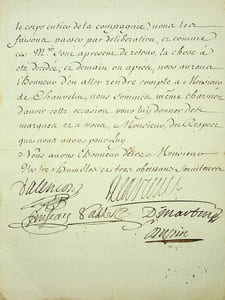 le corps entier de la compagnie, nous les
faisons passer par deliberation, et comme
ces Mrs. sont apresent de retour, la chose a
eté decidée, et demain ou aprés, nous aurons
l'honneur d'en aller rendre compte a Monsieur
de Chauvelin, nous sommes même charmés
d'avoir cette occasion pour luy donner des
marques et a vous, Monsieur, du Respect
que nous avons pour luy.
Nous avons l'honneur d'être Monsieur
Vos tres humbles et tres obeissans serviteurs
Dalencon